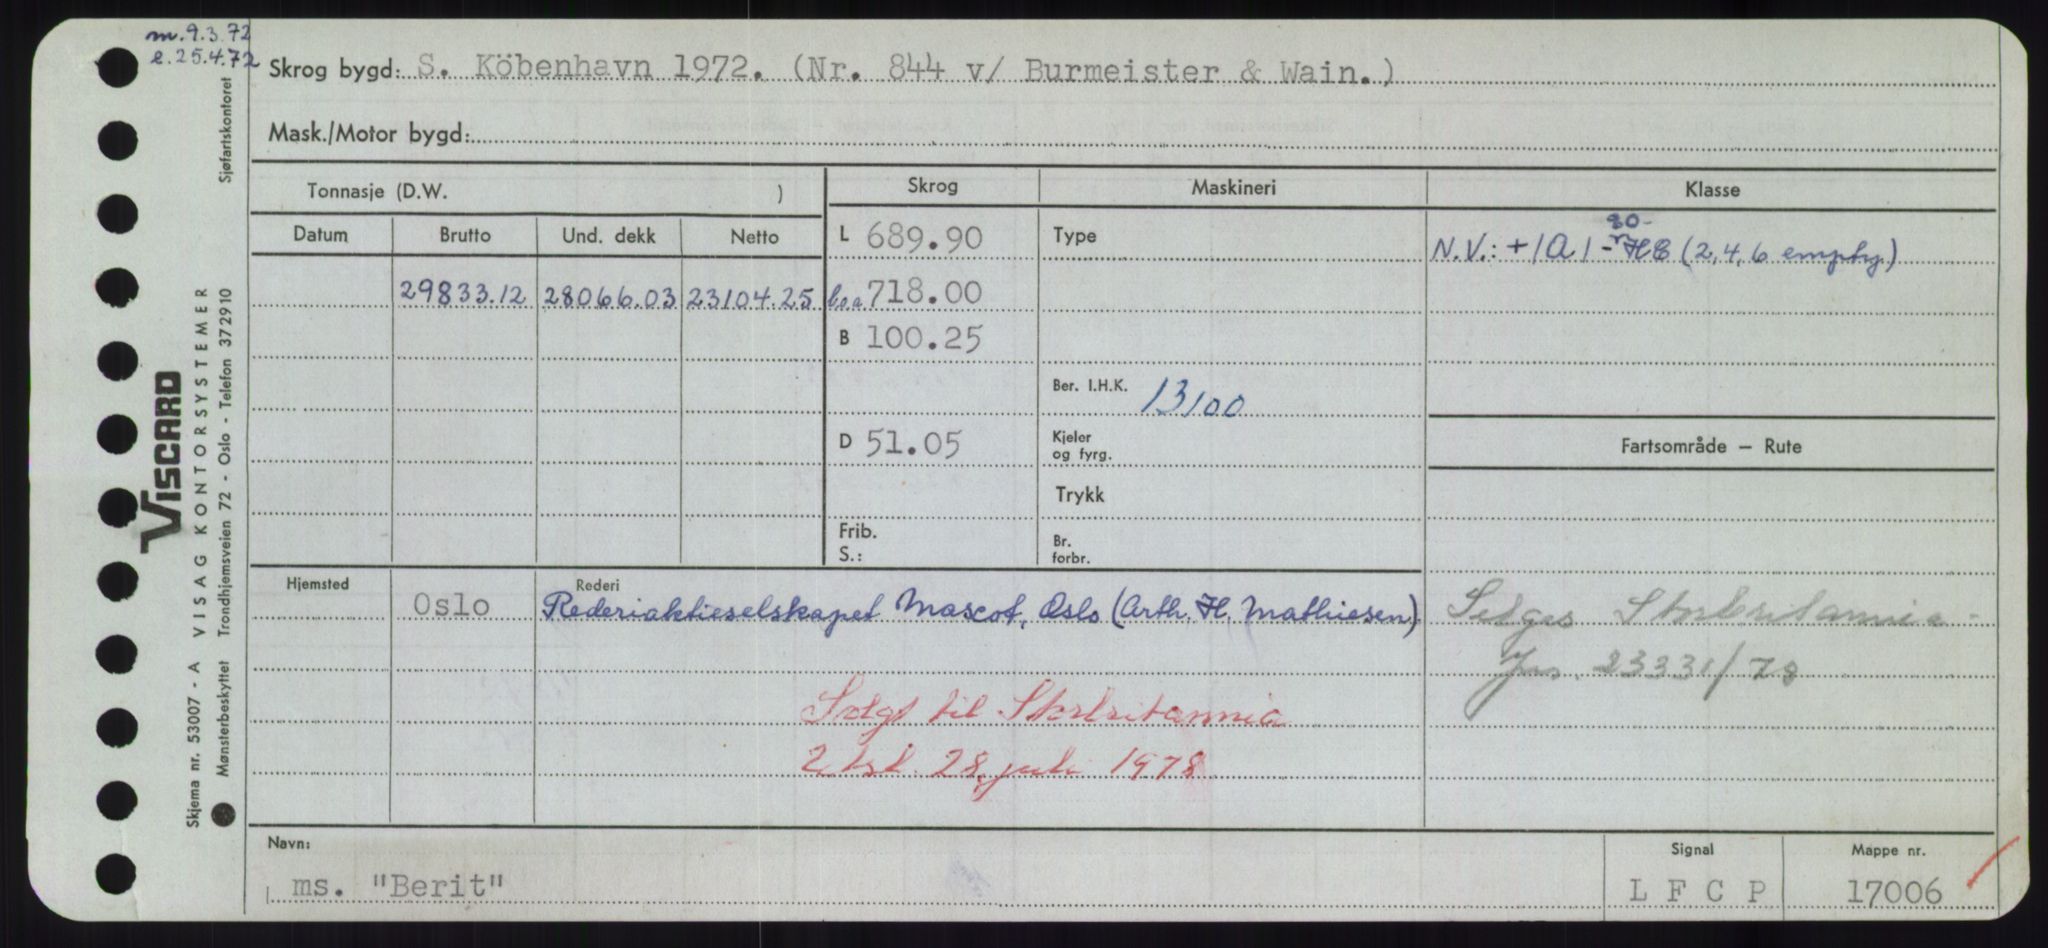 m. 9.3.72
e. 25.4.72
Skrog bygd: S. Köbenhavn 1972. (Nr. 844 v/ Burmeister & Wain.)
Mask./Motor bygd:
Tonnasje (D.W. )
Skrog
Maskineri
Klasse
Datum Brutto Und. dekk Netto
L 689.90
Type
80-
N.V.: +1A1- HC (2,4,6 empty)
29833.12 28066.03 23104.25
loa 718.00
B 100.25
Ber. I.H.K. 13100
D 51.05
Kjeler
og fyrg.
Fartsområde — Rute
Trykk
Frib.
S.:
Br.
forbr.
Hjemsted
Rederi
Oslo
Rederiaktieselskapet Mascot, Oslo (Arth. H. Mathiesen)
Selges Storbritannia -
Jnr. 23331/78
Solgt til Storbritannia
2 bst. 28 juli 1978
Navn:
ms. "Berit"
Signal
L F C P
Mappe nr.
17006
Skjema nr. 53007 - A VISAG KONTORSYSTEMER
VISCARD
Mønsterbeskyttet Trondhjemsveien 72 - Oslo - Telefon 372910
Sjøfartskontoret